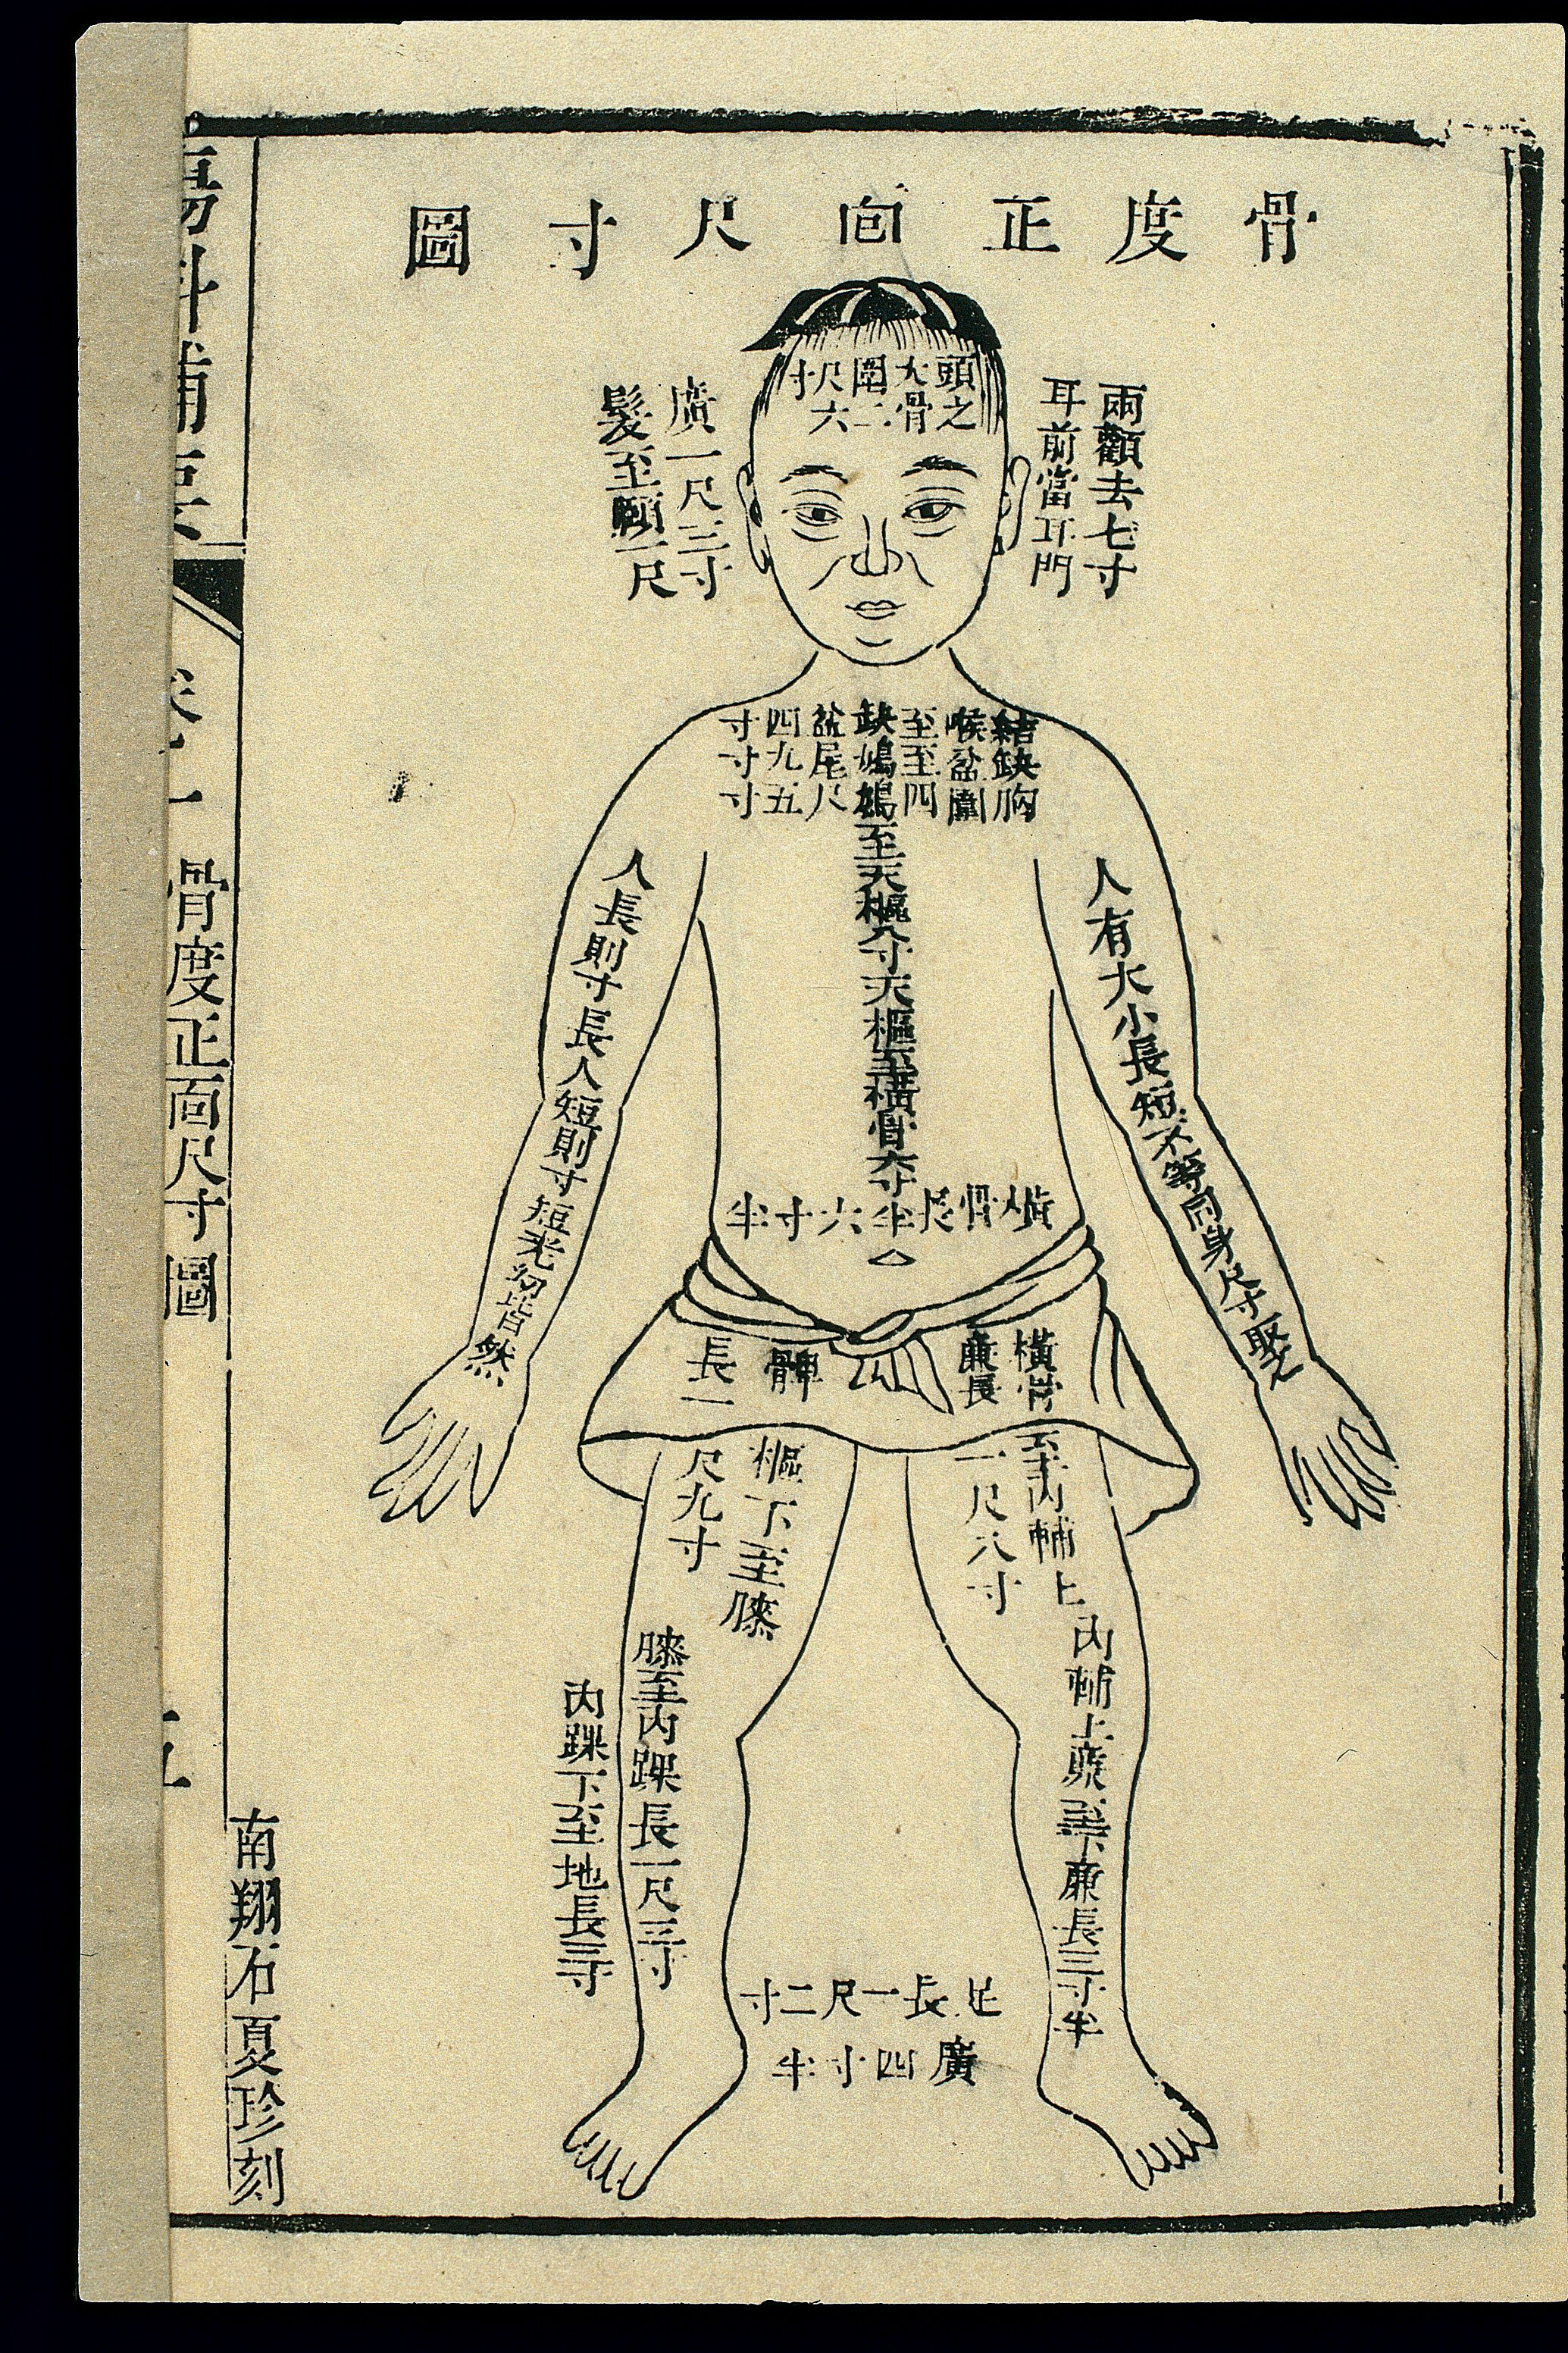 骨度正面尺寸圖
頭之
大骨
圍二
尺六
寸
兩顴去七寸
耳前當耳門
廣一尺三寸
髮至頤一尺
結喉至缺盆四寸
缺盆至鳩尾九寸
胸圍四尺五寸
鳩至天樞八寸天樞至橫骨六寸半
橫骨長六寸半
人有大小長短不等同身尺寸取之
人長則寸長人短則寸短老幼皆然
橫骨至內輔上
廉長一尺八寸
髀樞下至膝
長一尺九寸
內輔上廉至下廉長三寸半
膝至內踝長一尺三寸
內踝下至地長三寸
足長一尺二寸
廣四寸半
傷科補要
卷一 骨度正面尺寸圖
五
南翔石夏珍刻